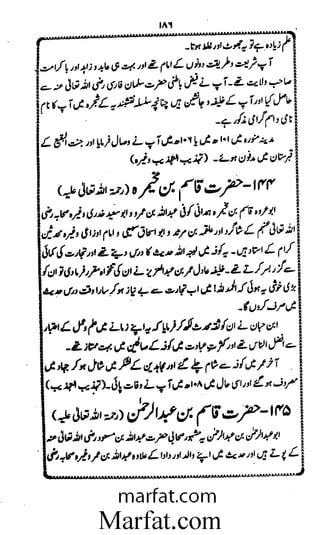 ۱۸۶
علم زیادہ ہے تو یہ جھوٹ اور غلط ہوتا۔
آپ شریعت و طریقت دونوں کے امام تھے اور بہت ہی عابد و زاہد اور باکرامت
صاحب ولایت تھے۔ آپ نے فیض باطنی حضرت سلمان فارسی رضی اللہ تعالیٰ عنہ سے
حاصل کیا اور آپ کے خلیفہ و جانشین ہیں چنانچہ سلسلہ نقشبندیہ کے شجرہ میں آپ کا نام
نامی و اسم گرامی مذکور ہے۔
مدینہ منورہ میں ۱۰۱ھ میں یا ۱۰۶ھ میں آپ نے وصال فرمایا اور جنت البقیع کے
قبرستان میں مدفون ہوئے۔ (تہذیب التہذیب وغیرہ)
۱۴۴- حضرت قاسم بن مخیمرہ (رحمۃ اللہ تعالیٰ علیہ)
ابو عروہ قاسم بن مخیمرہ ہمدانی کوفی عبداللہ بن عمرو و ابو سعید خدری وغیرہ صحابہ رضی
اللہ تعالیٰ عنہم کے شاگرد اور علقمہ بن مرثد و ابو اسحاق سبیعی و امام اوزاعی وغیرہ محدثین
کرام کے استاد ہیں۔ یہ کوفہ میں لوجہ اللہ حدیث کا درس دیتے تھے اور تجارت کی کمائی
سے گزر بسر کرتے تھے۔ خلیفہ عادل عمر بن عبدالعزیز نے ان کی تنخواہ مقرر فرمادی تو ان کو
بڑی خوشی ہوئی ہو کر الحمدللہ! میں اب تجارت سے بے نیاز ہو کر سارا وقت درس حدیث
میں صرف کروں گا۔
ابن حبان نے ان کو ثقہ محدث لکھ کر فرمایا کہ یہ اپنے زمانے میں علم و عمل کے اعتبار
سے افضل الناس تھے اور کثرت عبادت میں کوفہ کے صالحین میں بہت ممتاز تھے۔
آخر عمر میں کوفہ سے شام چلے گئے اور مجاہدین کے لشکر میں شامل ہو کر جہاد میں
مصروف ہو گئے اور اسی حال میں ۱۰۸ھ میں آپ نے وفات پائی۔ (تہذیب التہذیب)
۱۴۵- حضرت قاسم بن عبدالرحمٰن (رحمۃ اللہ تعالیٰ علیہ)
ابو عبدالرحمٰن بن عبدالرحمٰن یہ مشہور صحابی حضرت عبداللہ بن مسعود رضی اللہ تعالیٰ عنہ
کے پوتے ہیں اور حدیث میں اپنے والد اور دادا کے علاوہ عبداللہ بن عمر وغیرہ صحابہ رضی
marfat.com
Marfat.com